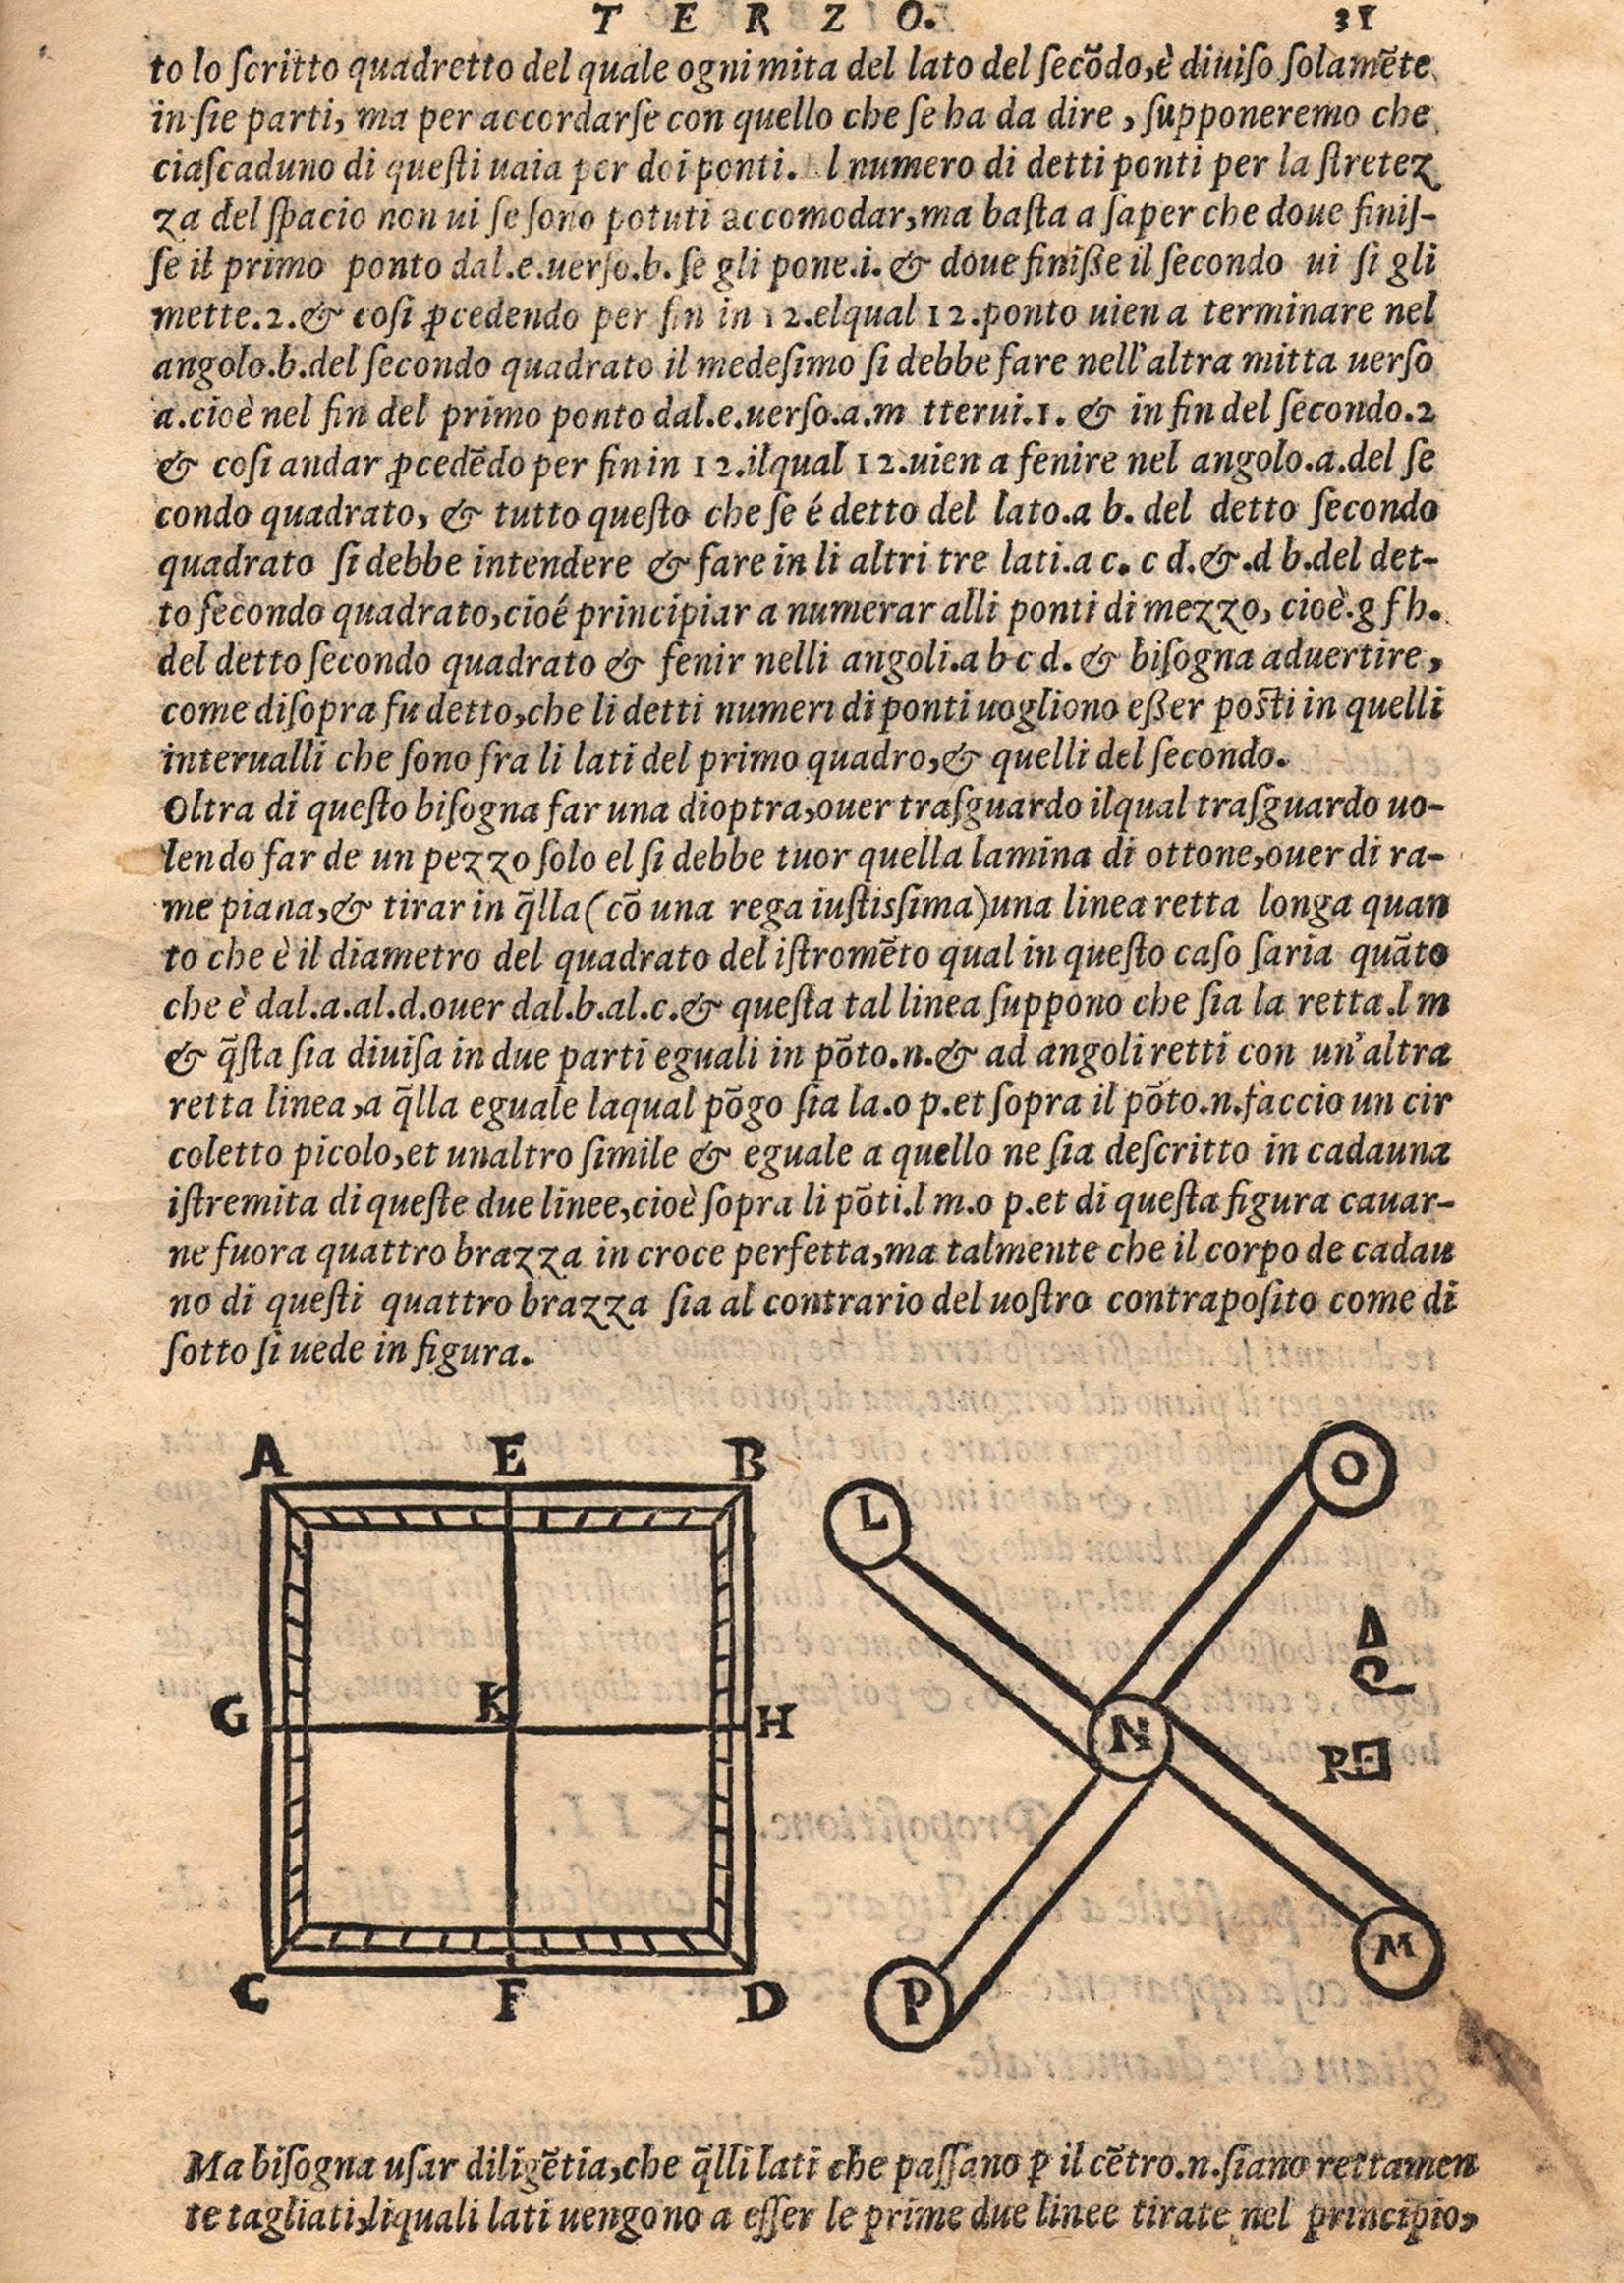 T E R Z O. 31
to lo ſcritto quadretto del quale ogni mita del lato del ſecõdo,è diuiſo ſolamẽte
in ſie parti, ma per accordarſe con quello che ſe ha da dire, ſupponeremo che
ciaſcaduno di queſti uaia per doi ponti. l numero di detti ponti per la ſtretez
za del ſpacio non ui ſe ſono potuti accomodar,ma baſta a ſaper che doue finiſ-
ſe il primo ponto dal.e.uerſo.b.ſe gli pone.i.& doue finiße il ſecondo ui ſi gli
mette.2.& coſi ꝓcedendo per fin in 12.elqual 12.ponto uien a terminare nel
angolo.b.del ſecondo quadrato il medeſimo ſi debbe fare nell'altra mitta uerſo
a.cioè nel fin del primo ponto dal.e.uerſo.a.m tterui.1. & in fin del ſecondo.2
& coſi andar ꝓcedẽdo per fin in 12.ilqual 12.uien a fenire nel angolo.a.del ſe
condo quadrato, & tutto queſto che ſe é detto del lato.a b. del detto ſecondo
quadrato ſi debbe intendere & fare in li altri tre lati.a c. c d.&.d b.del det-
to ſecondo quadrato,cioé principiar a numerar alli ponti di mezzo, cioè.g f h.
del detto ſecondo quadrato & fenir nelli angoli.a b c d. & biſogna aduertire,
come diſopra fu detto,che li detti numeri di ponti uogliono eßer poſti in quelli
interualli che ſono fra li lati del primo quadro,& quelli del ſecondo.
Oltra di queſto biſogna far una dioptra,ouer traſguardo ilqual traſguardo uo-
lendo far de un pezzo ſolo el ſi debbe tuor quella lamina di ottone,ouer di ra-
me piana,& tirar in q̃lla(cõ una rega iuſtisſima)una linea retta longa quan
to che è il diametro del quadrato del iſtromẽto qual in queſto caſo ſaria quãto
che è dal.a.al.d.ouer dal.b.al.c.& queſta tal linea ſuppono che ſia la retta.l m
& q̃ſta ſia diuiſa in due parti eguali in põto.n.& ad angoli retti con un'altra
retta linea,a q̃lla eguale laqual põgo ſia la.o p.et ſopra il põto.n.faccio un cir
coletto picolo,et unaltro ſimile & eguale a quello ne ſia deſcritto in cadauna
iſtremita di queſte due linee,cioè ſopra li põti.l m.o p.et di queſta figura cauar-
ne fuora quattro brazza in croce perfetta,ma talmente che il corpo de cadau
no di queſti quattro brazza ſia al contrario del uoſtro contrapoſito come di
ſotto ſi uede in figura.
A E B
G K H
C F D
L O
N
P M
Ma biſogna uſar diligẽtia,che q̃lli lati che paſſano ꝑ il cẽtro.n.ſiano rettamen
te tagliati,liquali lati uengono a eſſer le prime due linee tirate nel principio,